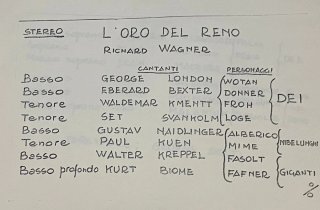 STEREO L'ORO DEL RENO
RICHARD WAGNER
CANTANTI PERSONAGGI
Basso GEORGE LONDON WOTAN
Basso EBERARD BEXTER DONNER
Tenore WALDEMAR KMENTT FROH
Tenore SET SVANHOLM LOGE
DEI
Basso GUSTAV NAIDLINGER ALBERICO
Tenore PAUL KUEN MIME
NIBELUNGHI
Basso WALTER KREPPEL FASOLT
Basso profondo KURT BIOME FAFNER
GIGANTI
%